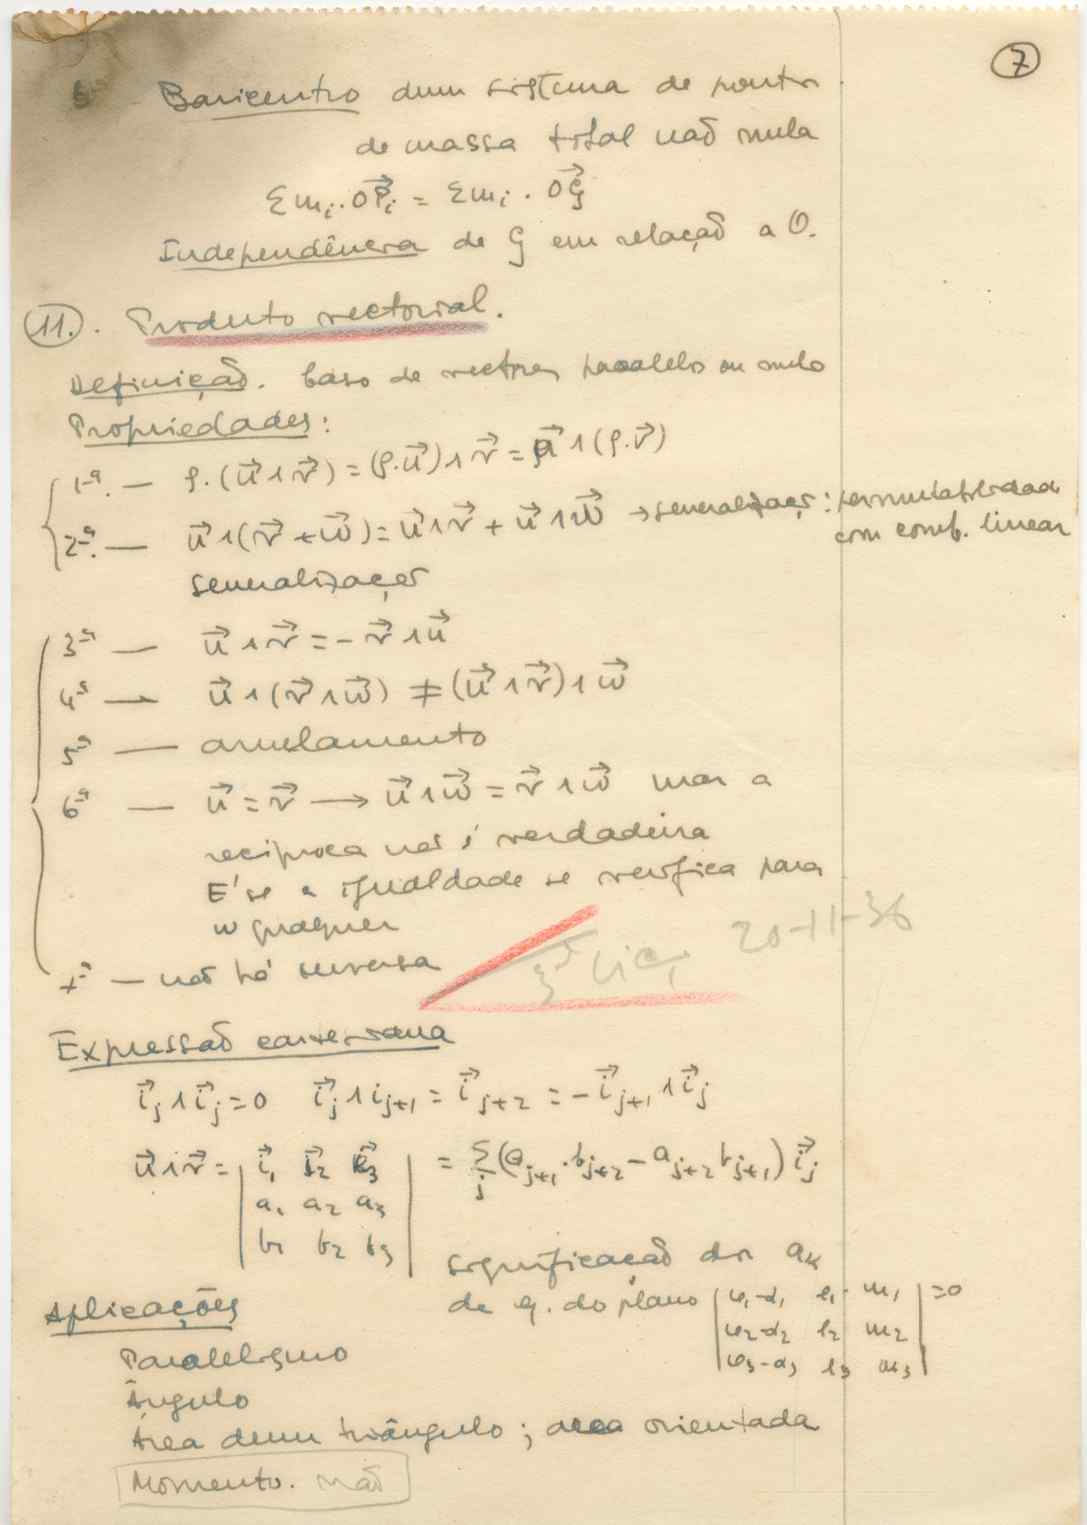 7
Baricentro dum sistema de pontos
de massa total não nula
Σmᵢ.OP⃗ᵢ = Σmᵢ . OG⃗
Independência de G em relação a O.
11. Produto vectorial.
Definição. Caso de vectores paralelos ou nulo
Propriedades:
1ª. — ρ.(u⃗∧v⃗) = (ρ.u⃗)∧v⃗ = u⃗∧(ρ.v⃗)
2ª. — u⃗∧(v⃗+w⃗) = u⃗∧v⃗ + u⃗∧w⃗ → generalização: permutabilidade
com comb. linear
generalização
3ª — u⃗∧v⃗ = -v⃗∧u⃗
4ª — u⃗∧(v⃗∧w⃗) ≠ (u⃗∧v⃗)∧w⃗
5ª — anulamento
6ª — u⃗ = v⃗ → u⃗∧w⃗ = v⃗∧w⃗ mas a
recíproca não é verdadeira
E' se a igualdade se verifica para
w qualquer
7ª — não há inversa
3ª lic. 20-11-36
Expressão cartesiana
i⃗ⱼ∧i⃗ⱼ=0 i⃗ⱼ∧iⱼ₊₁ = i⃗ⱼ₊₂ = -i⃗ⱼ₊₁∧i⃗ⱼ
u⃗∧v⃗ = | i⃗₁ i⃗₂ i⃗₃ | = Σⱼ (aⱼ₊₁.bⱼ₊₂ - aⱼ₊₂bⱼ₊₁) i⃗ⱼ
a₁ a₂ a₃
b₁ b₂ b₃
significação dos aₖ
da eq. do plano | x₁-α₁ l₁ m₁ | =0
x₂-α₂ l₂ m₂
x₃-α₃ l₃ m₃
Aplicações
Paralelismo
Ângulo
Área dum triângulo; area orientada
Momento. não